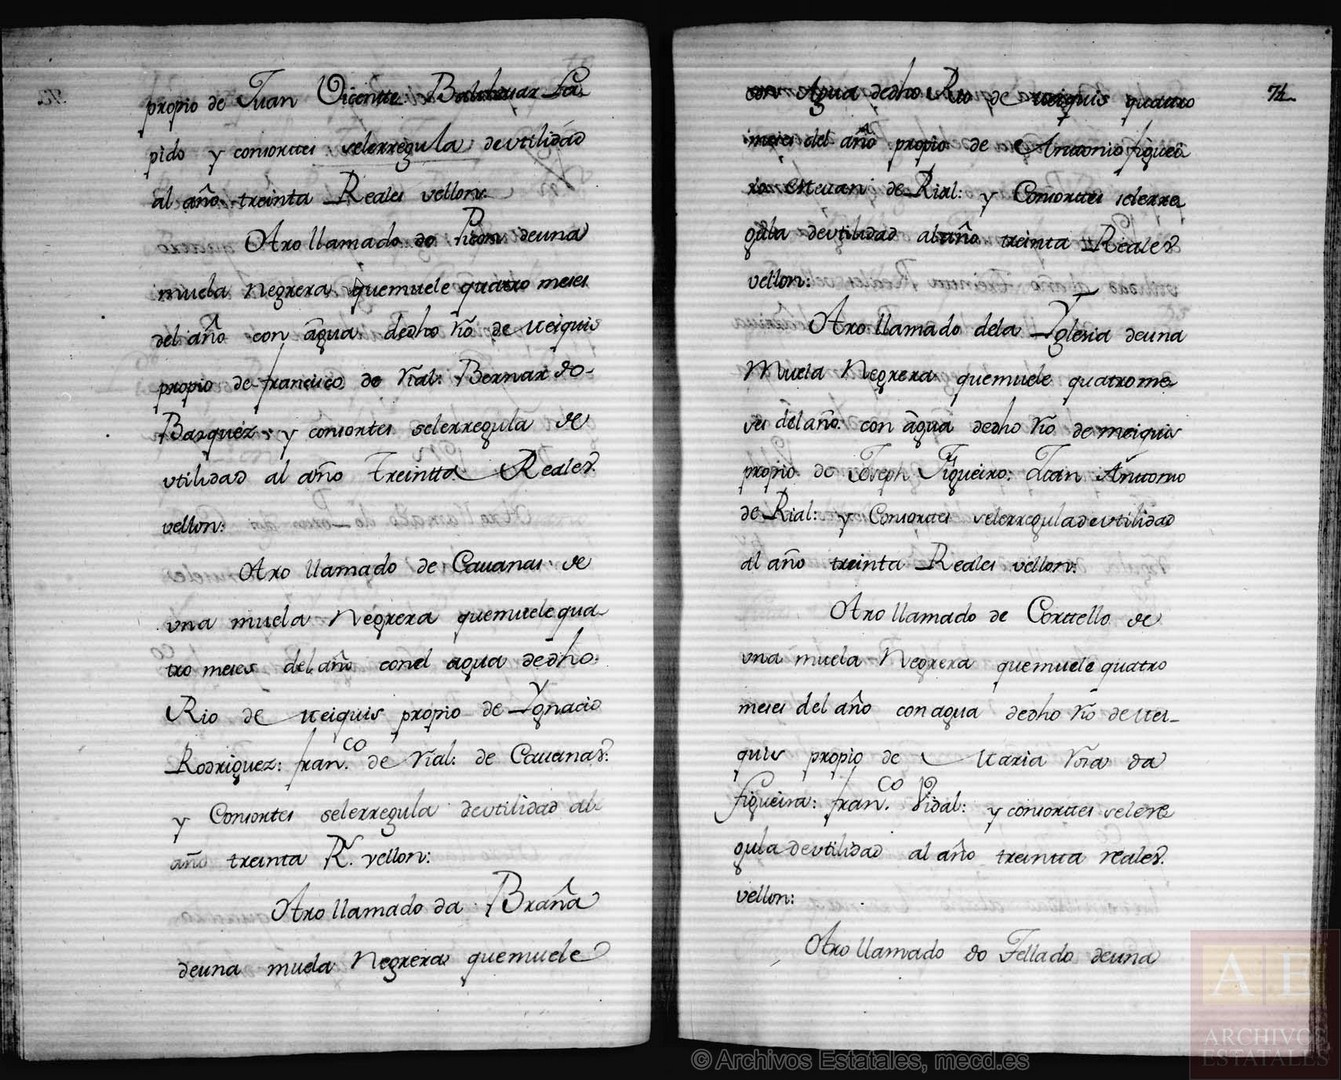 propio de Juan Vicente Baldassar Las
pido y consortes selerregula deutilidad
al año treinta Reales vellon:
Otro llamado do Picon deuna
muela negrera quemuele quatro meses
del año con agua dedho Rio de Meiquis
propio de francisco do Rial: Bernardo
Basquez: y consortes selerregula de
utilidad al año Treintta Reales
vellon:
Otro llamado de Cauanas de
vna muela negrera quemuele qua
tro meses del año conel agua dedho
Rio de Meiquis propio de Ygnacio
Rodriguez: fran.co de Rial: de Cauanas:
y Consortes selerregula deutilidad al
año treinta R.s vellon:
Otro llamado da Braña
deuna muela negrera quemuele
con agua dedho Rio de meiquis quatro
meses del año propio de Antonio figuei
ra esteuan de Rial: y Consortes selerre
gula deutilidad al año treinta Reales
vellon:
Otro llamado dela Yglesia deuna
Muela negrera quemuele quatrome
ses del año con agua dedho Rio de meiquis
propio de Joseph Figueiro: Juan Antonio
de Rial: y Consortes selerreguladeutilidad
al año treinta Reales vellon:
Otro llamado de Cortello de
vna muela negrera quemuele quatro
meses del año con agua dedho Rio de Mei_
quis propio de Maria Rosa da
figueira: fran.co Vidal: y consortes selerre
gula deutilidad al año treintta reales
vellon:
Otro llamado do Tellado deuna
74
© Archivos Estatales, mecd.es
AE
ARCHIVOS
ESTATALES